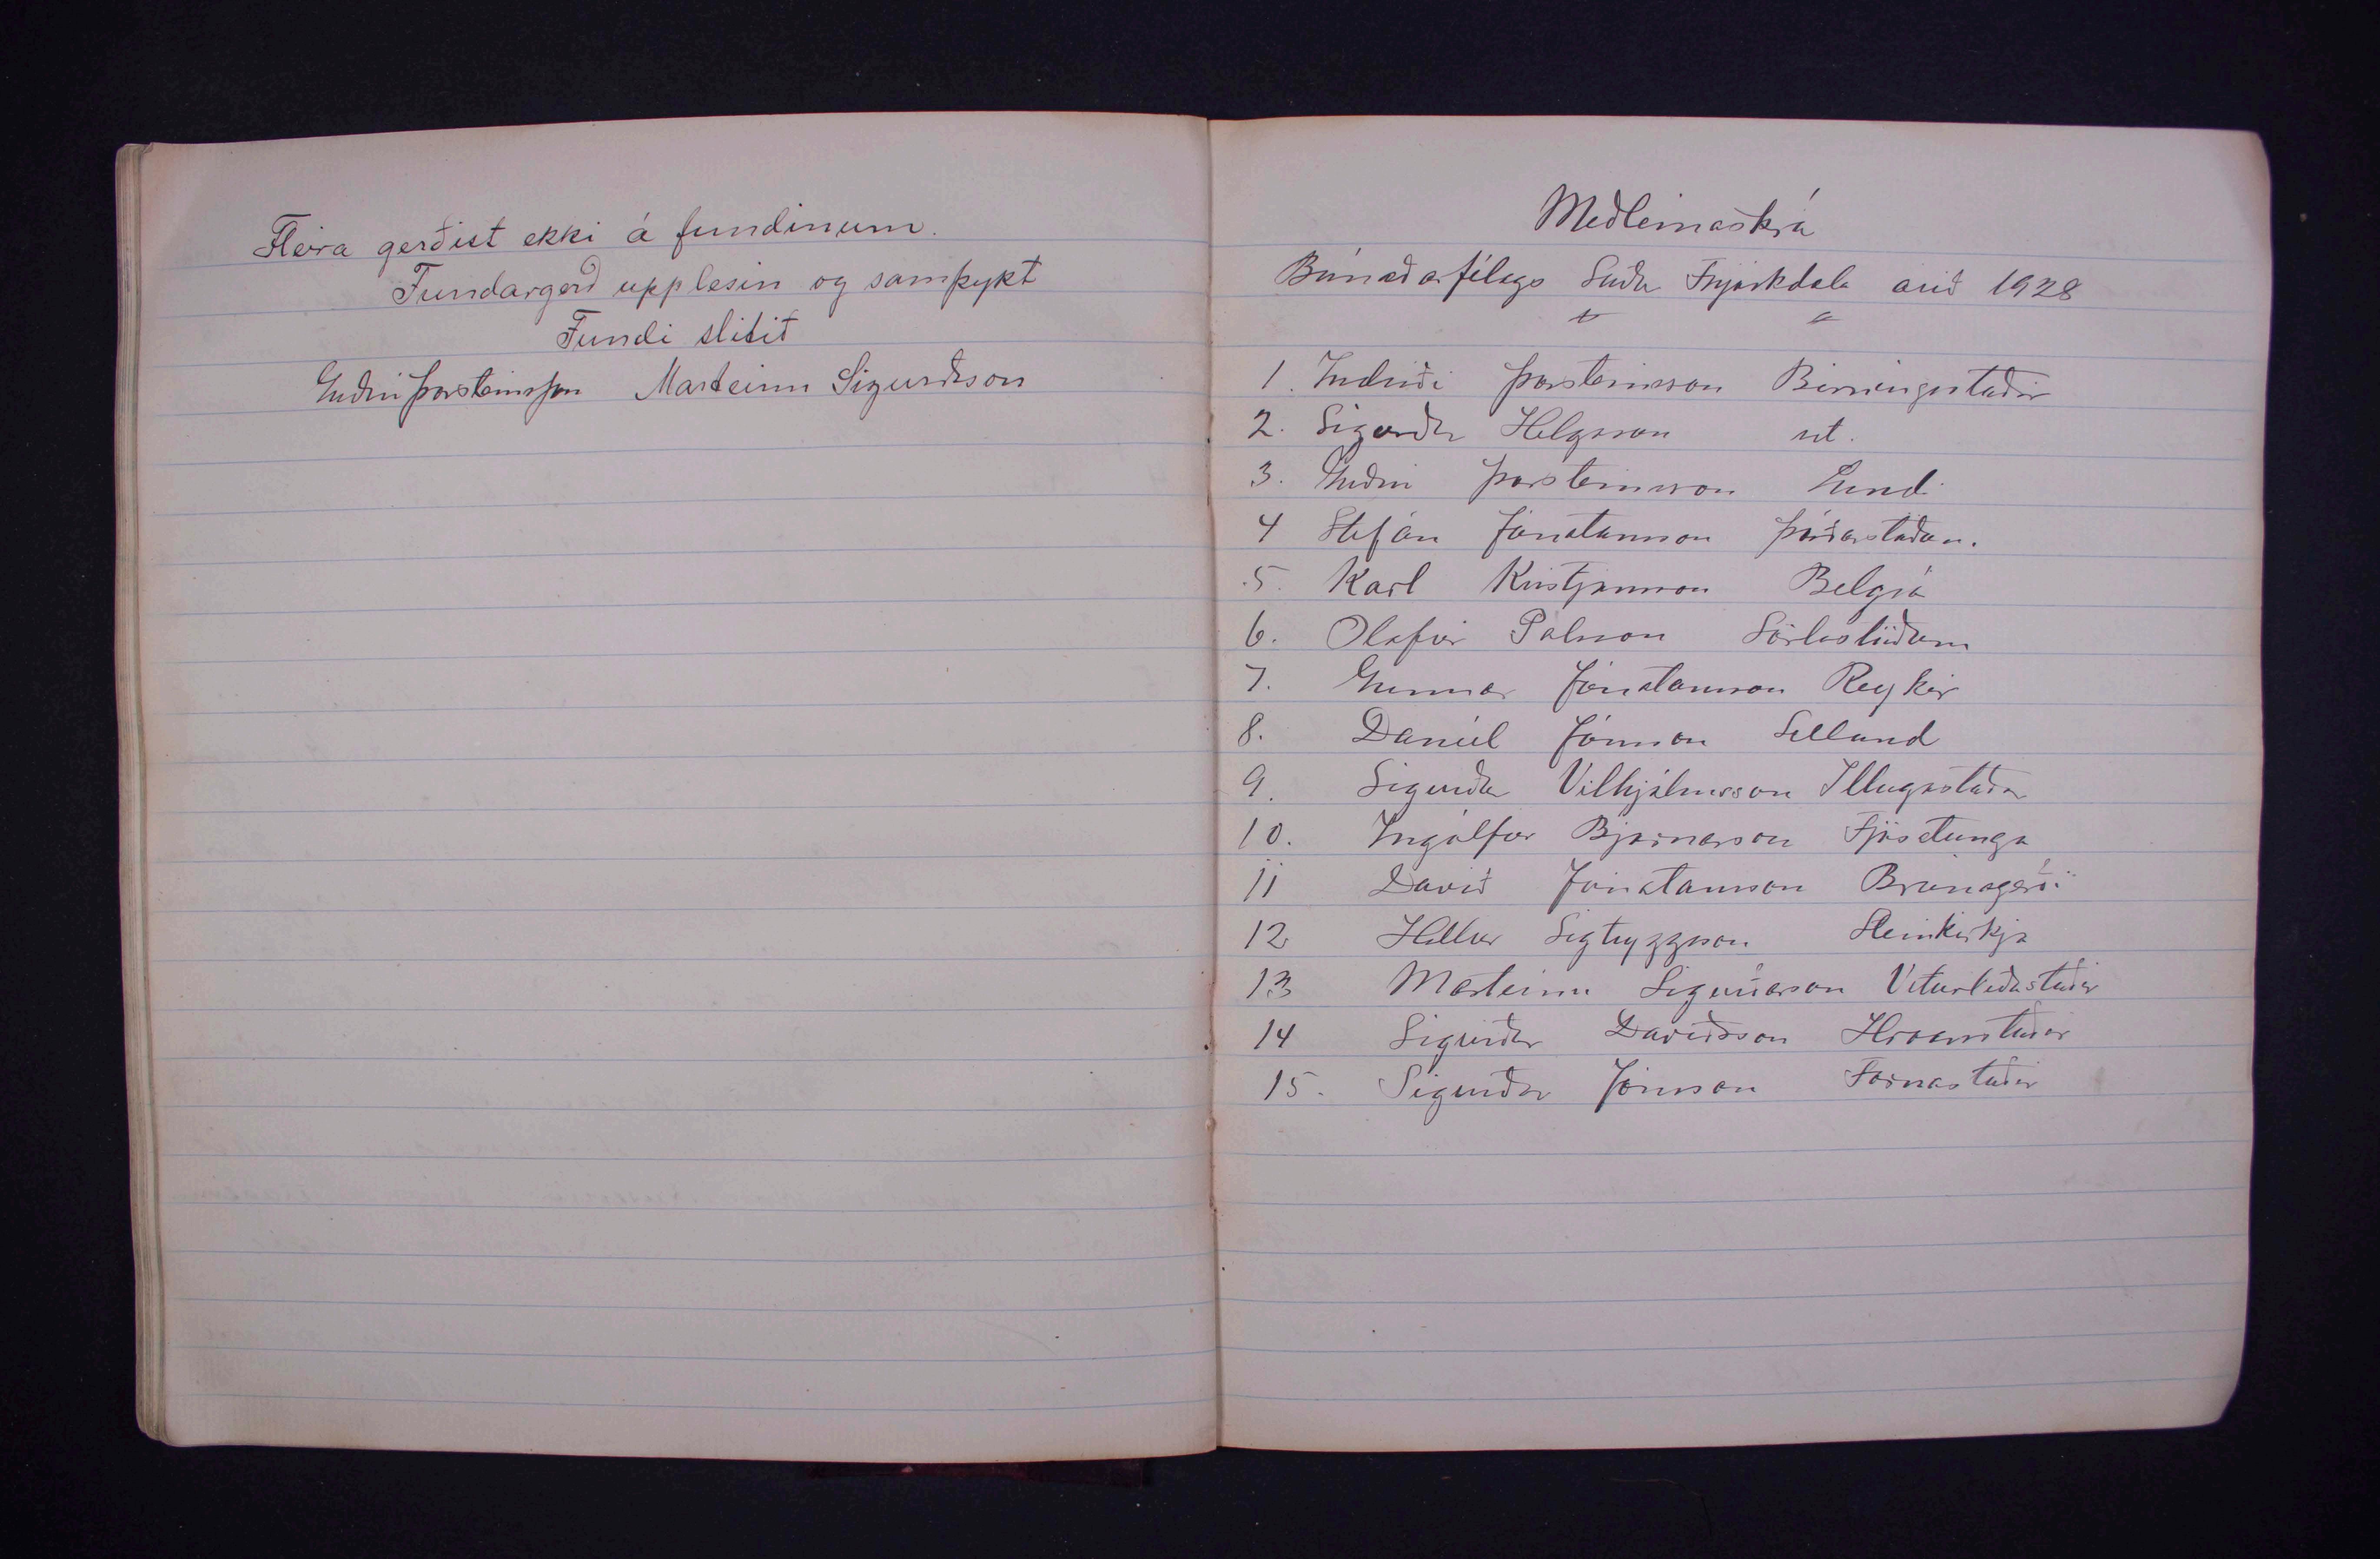 Fleira gerðist ekki á fundinum.
Fundargerð upplesin og samþykt
Fundi slitið
Guðni Þorsteinsson Marteinn Sigurðsson
Meðlimaskrá
Búnaðarfélags Suður Fnjóskdæla árið 1928
1. Indriði Þorsteinsson Birningsstaðir
2. Sigurður Helgason st.
3. Guðni Þorsteinsson Lund
4 Stefán Jónatansson Þórðarstaðan.
5. Karl Kristjánsson Belgsá
6. Olafur Palsson Sörlastöðum
7. Gunnar Jónatansson Reykir
8. Daníel Jónsson Selland
9. Sigurður Vilhjálmsson Illugastaðir
10. Ingólfur Bjarnarson Fjósatunga
11 Davið Jónatansson Brúnagerði
12 Hallur Sigtryggsson Steinkirkja
13 Marteinn Sigurðarson Veturliðastaðir
14 Sigurður Davíðsson Hróarstaðir
15. Sigurður Jónsson Fornastaðir